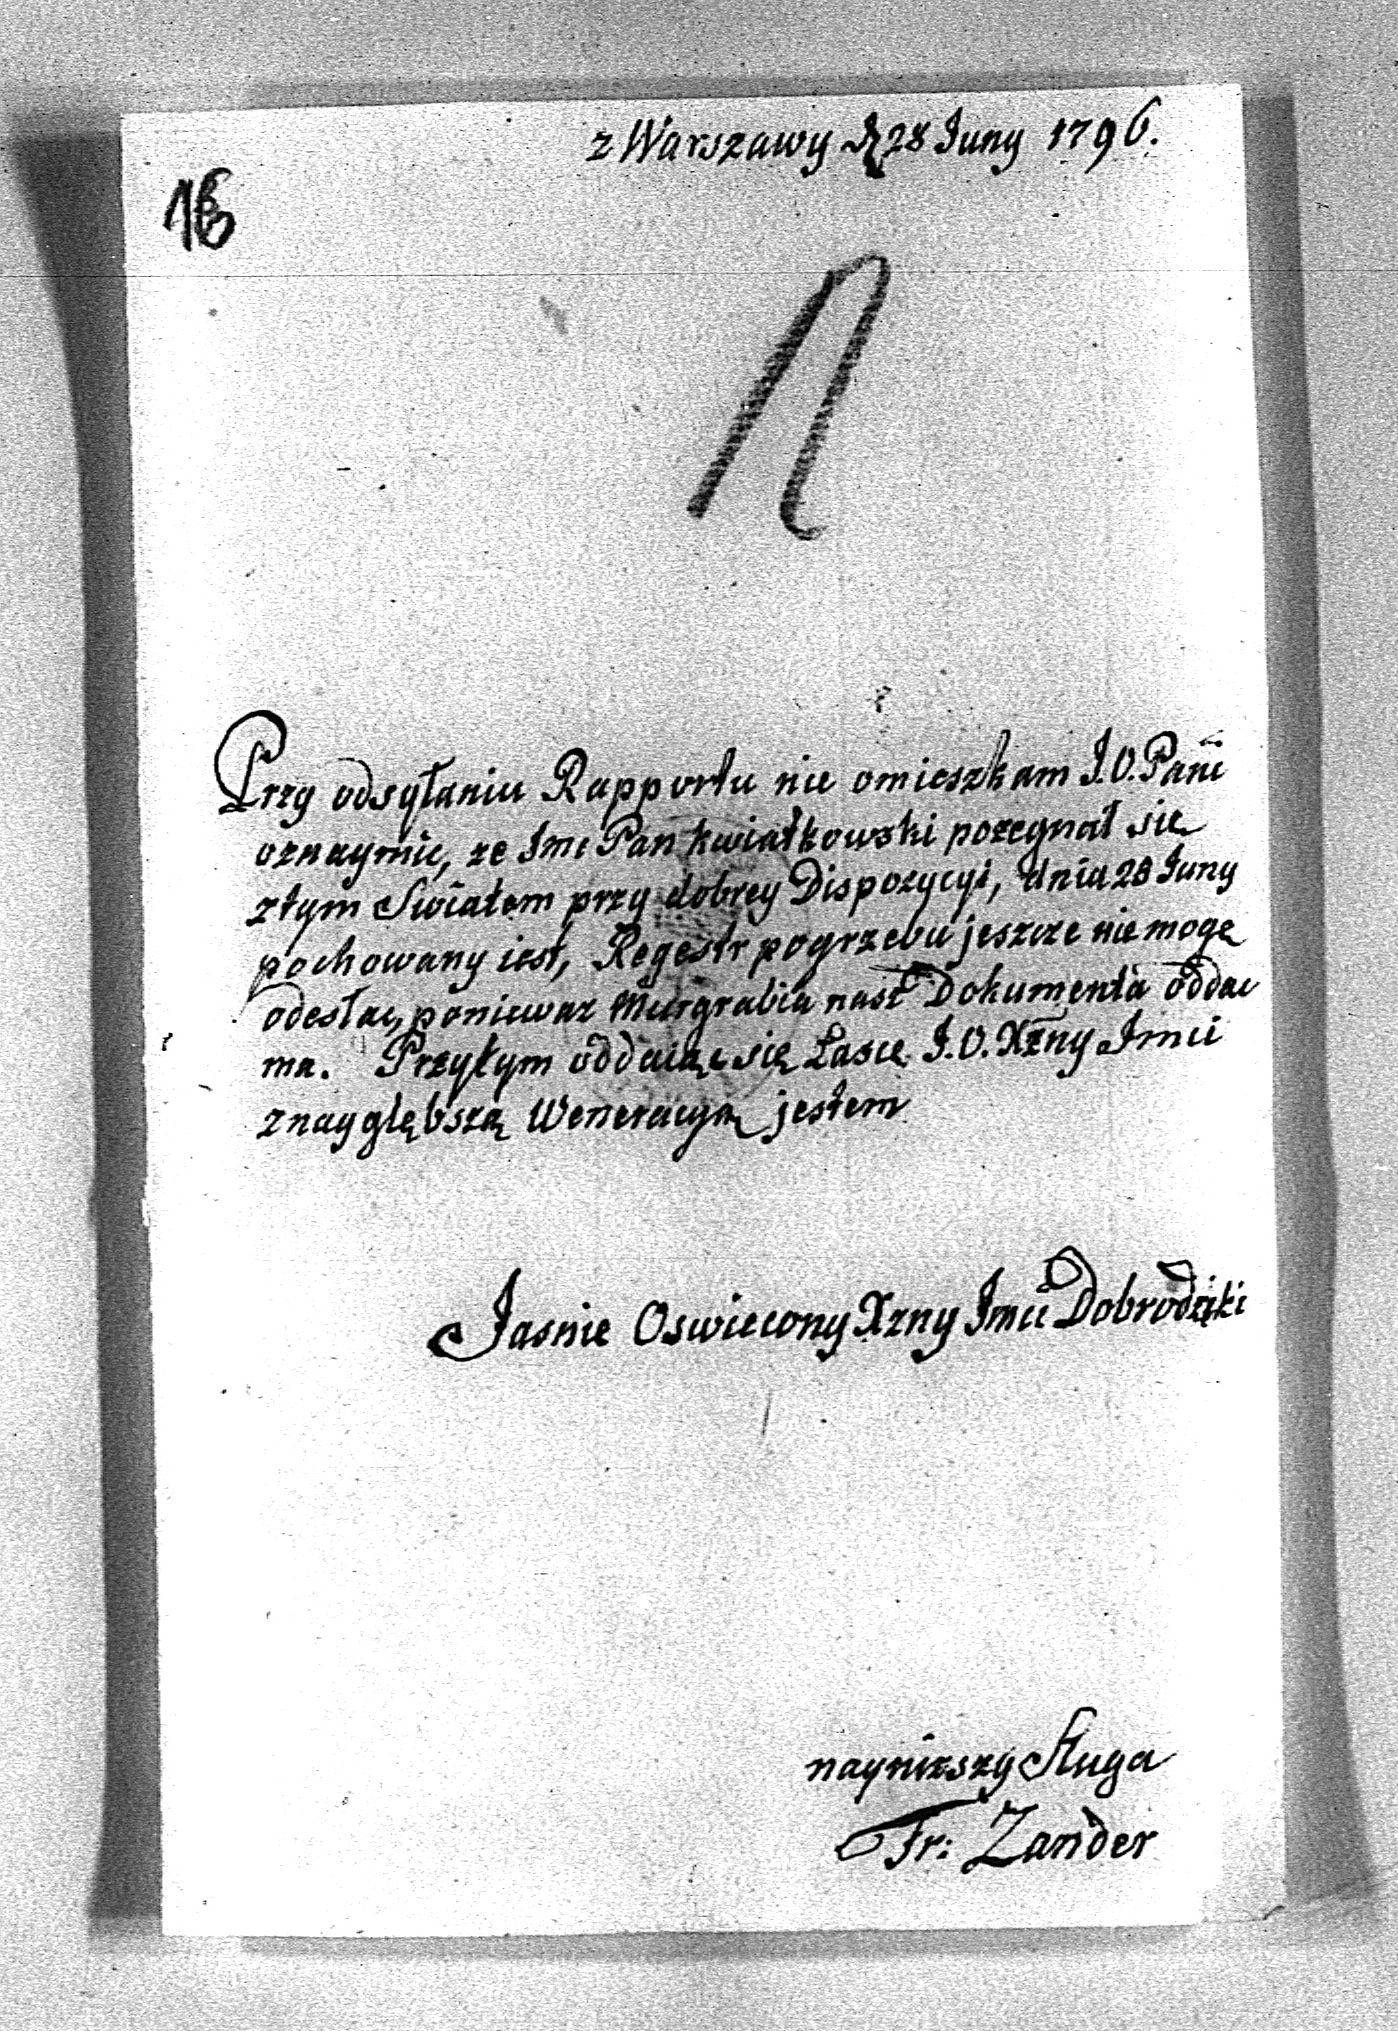 z Warszawy d 28 Juny 1796.
16
Przy odsyłaniu Rapportu nie omieszkam J. O. Pani
oznaymic, ze Jmc Pan kwiatkowski pozegnał sie
ztym Swiatem przy dobrey Dispozycyi, dnia 28 Juny
pochowany iest, Regestr pogrzebu jeszcze nie moge
odesłac, poniewaz Murgrabia nasz Dokumenta oddac
ma. Przytym oddaiąc się Łasce J. O. Xzny Jmci
znaygłębszą Weneracyą jestem
Jasnie Oswiecony Xzny Jmci Dobrodzki
naynizszy Sługa
Fr: Zander